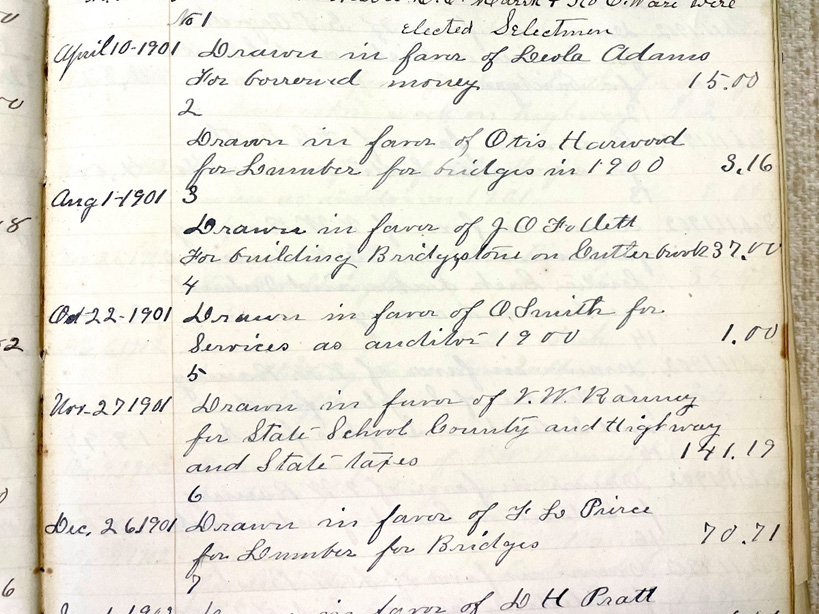 No 1
elected Selectmen
April 10-1901 Drawn in favor of Leola Adams
For borrowed money 15.00
2
Drawn in favor of Otis Harwood
for Lumber for bridges in 1900 3.16
Aug 1-1901 3
Drawn in favor of J O Follett
For building Bridge stone on Cutler brook 37.00
4
Oct 22-1901 Drawn in favor of O Smith for
Services as auditor 1900 1.00
5
Nov-27 1901 Drawn in favor of V. W. Ranney
for State School County and Highway
and State taxes 141.19
6
Dec, 26 1901 Drawn in favor of F L Peirce
for Lumber for Bridges 70.71
7
in favor of D H Pratt